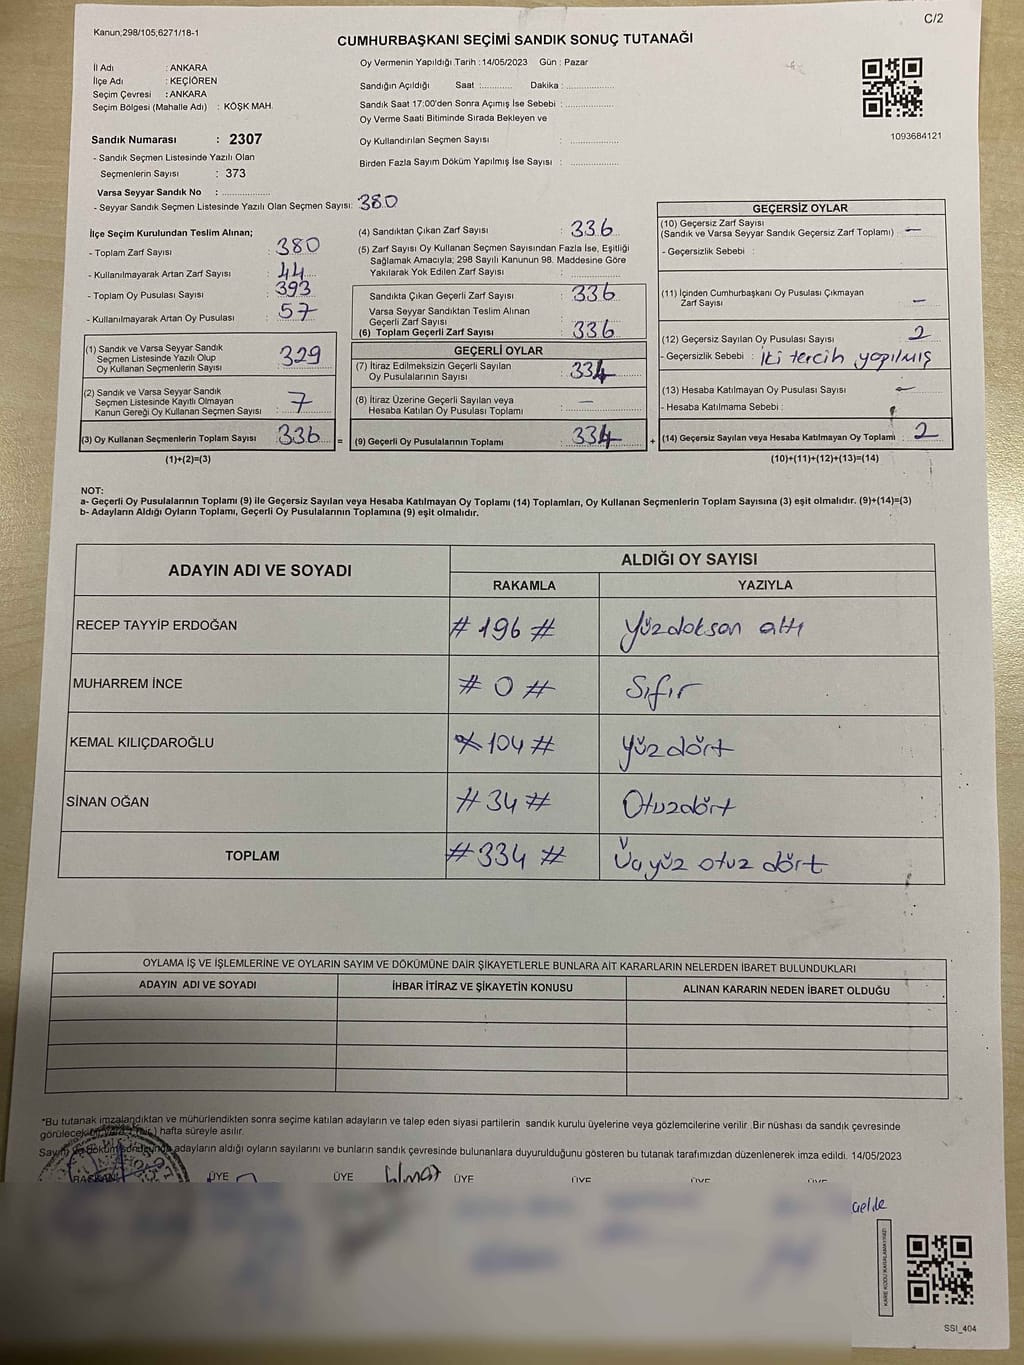 C/2
Kanun;298/105,6271/18-1
CUMHURBAŞKANI SEÇİMİ SANDIK SONUÇ TUTANAĞI
İl Adı : ANKARA
İlçe Adı : KEÇİÖREN
Seçim Çevresi : ANKARA
Seçim Bölgesi (Mahalle Adı) : KÖŞK MAH.
Oy Vermenin Yapıldığı Tarih : 14/05/2023 Gün : Pazar
Sandığın Açıldığı Saat :............ Dakika :..................
Sandık Saat 17:00'den Sonra Açımış İse Sebebi :..................
Oy Verme Saati Bitiminde Sırada Bekleyen ve
Oy Kullandırılan Seçmen Sayısı : ..................
Birden Fazla Sayım Döküm Yapılmış İse Sayısı : ..................
1093684121
Sandık Numarası : 2307
- Sandık Seçmen Listesinde Yazılı Olan
Seçmenlerin Sayısı : 373
Varsa Seyyar Sandık No : ..................
- Seyyar Sandık Seçmen Listesinde Yazılı Olan Seçmen Sayısı: 380
İlçe Seçim Kurulundan Teslim Alınan;
- Toplam Zarf Sayısı : 380
- Kullanılmayarak Artan Zarf Sayısı : 44
- Toplam Oy Pusulası Sayısı : 393
- Kullanılmayarak Artan Oy Pusulası : 57
(1) Sandık ve Varsa Seyyar Sandık
Seçmen Listesinde Yazılı Olup
Oy Kullanan Seçmenlerin Sayısı : 329
(2) Sandık ve Varsa Seyyar Sandık
Seçmen Listesinde Kayıtlı Olmayan
Kanun Gereği Oy Kullanan Seçmen Sayısı : 7
(3) Oy Kullanan Seçmenlerin Toplam Sayısı : 336 =
(1)+(2)=(3)
(4) Sandıktan Çıkan Zarf Sayısı : 336
(5) Zarf Sayısı Oy Kullanan Seçmen Sayısından Fazla İse, Eşitliği
Sağlamak Amacıyla; 298 Sayılı Kanunun 98. Maddesine Göre
Yakılarak Yok Edilen Zarf Sayısı : ..................
Sandıkta Çıkan Geçerli Zarf Sayısı : 336
Varsa Seyyar Sandıktan Teslim Alınan
Geçerli Zarf Sayısı :
(6) Toplam Geçerli Zarf Sayısı : 336
GEÇERLİ OYLAR
(7) İtiraz Edilmeksizin Geçerli Sayılan
Oy Pusulalarının Sayısı : 334
(8) İtiraz Üzerine Geçerli Sayılan veya
Hesaba Katılan Oy Pusulası Toplamı : –
(9) Geçerli Oy Pusulalarının Toplamı : 334 +
GEÇERSİZ OYLAR
(10) Geçersiz Zarf Sayısı
(Sandık ve Varsa Seyyar Sandık Geçersiz Zarf Toplamı) : –
- Geçersizlik Sebebi :
(11) İçinden Cumhurbaşkanı Oy Pusulası Çıkmayan
Zarf Sayısı : –
(12) Geçersiz Sayılan Oy Pusulası Sayısı : 2
- Geçersizlik Sebebi : İki tercih yapılmış
(13) Hesaba Katılmayan Oy Pusulası Sayısı : –
- Hesaba Katılmama Sebebi :
(14) Geçersiz Sayılan veya Hesaba Katılmayan Oy Toplamı : 2
(10)+(11)+(12)+(13)=(14)
NOT:
a- Geçerli Oy Pusulalarının Toplamı (9) ile Geçersiz Sayılan veya Hesaba Katılmayan Oy Toplamı (14) Toplamları, Oy Kullanan Seçmenlerin Toplam Sayısına (3) eşit olmalıdır. (9)+(14)=(3)
b- Adayların Aldığı Oyların Toplamı, Geçerli Oy Pusulalarının Toplamına (9) eşit olmalıdır.
ADAYIN ADI VE SOYADI ALDIĞI OY SAYISI
RAKAMLA YAZIYLA
RECEP TAYYİP ERDOĞAN # 196 # Yüzdoksan altı
MUHARREM İNCE # 0 # Sıfır
KEMAL KILIÇDAROĞLU # 104 # Yüz dört
SİNAN OĞAN # 34 # Otuzdört
TOPLAM # 334 # Üçyüz otuz dört
OYLAMA İŞ VE İŞLEMLERİNE VE OYLARIN SAYIM VE DÖKÜMÜNE DAİR ŞİKAYETLERLE BUNLARA AİT KARARLARIN NELERDEN İBARET BULUNDUKLARI
ADAYIN ADI VE SOYADI İHBAR İTİRAZ VE ŞİKAYETİN KONUSU ALINAN KARARIN NEDEN İBARET OLDUĞU
*Bu tutanak imzalandıktan ve mühürlendikten sonra seçime katılan adayların ve talep eden siyasi partilerin sandık kurulu üyelerine veya gözlemcilerine verilir .Bir nüshası da sandık çevresinde
görülecek bir yere 1 (bir ) hafta süreyle asılır.
Sayım ve döküm sonucunda adayların aldığı oyların sayılarını ve bunların sandık çevresinde bulunanlara duyurulduğunu gösteren bu tutanak tarafımızdan düzenlenerek imza edildi. 14/05/2023
BAŞKAN ÜYE ÜYE ÜYE ÜYE ÜYE ÜYE
KARE KODU KARALAMAYINIZ!
SSI_404